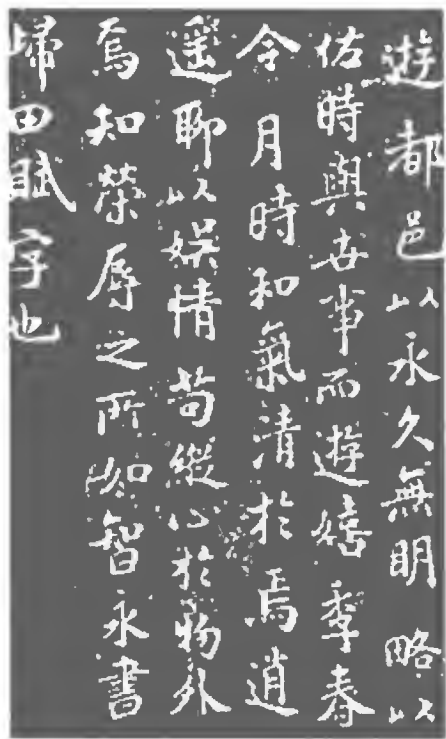 遊都邑以永久無明略以
佐時與世事而遊嬉季春
令月時和氣清於焉逍
遥聊以娛情苟縱心於物外
焉知榮辱之所如智永書
歸田賦字也